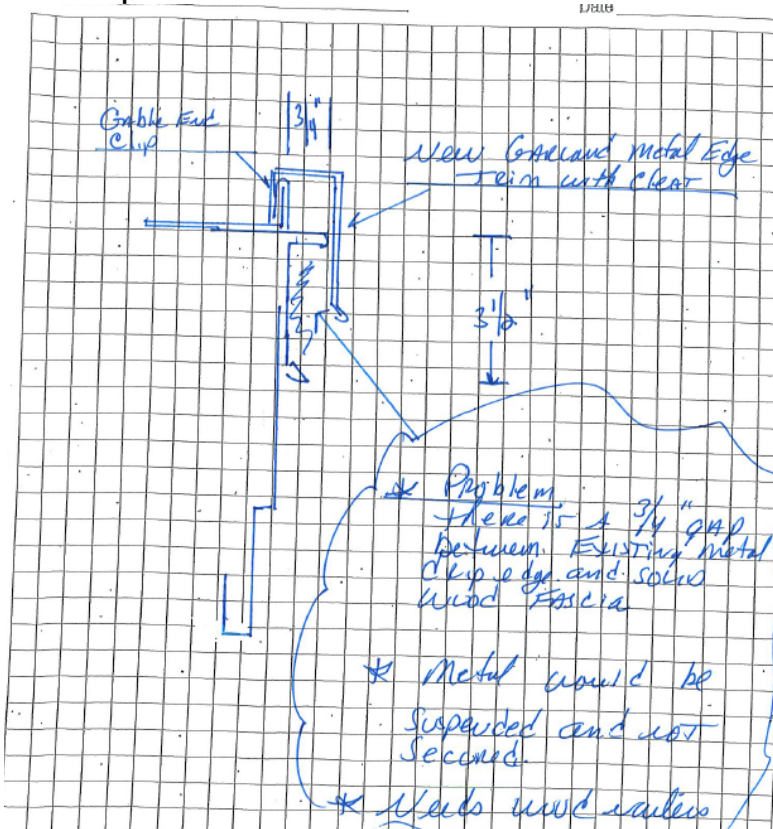 Date
Gable End
Clip
3/4"
New Garland Metal Edge
Trim with Cleat
3 1/2"
* Problem
there is A 3/4" gAp
between Existing metal
drip edge and solid
wood Fascia
* Metal would be
Suspended and not
Secured.
* Needs wood